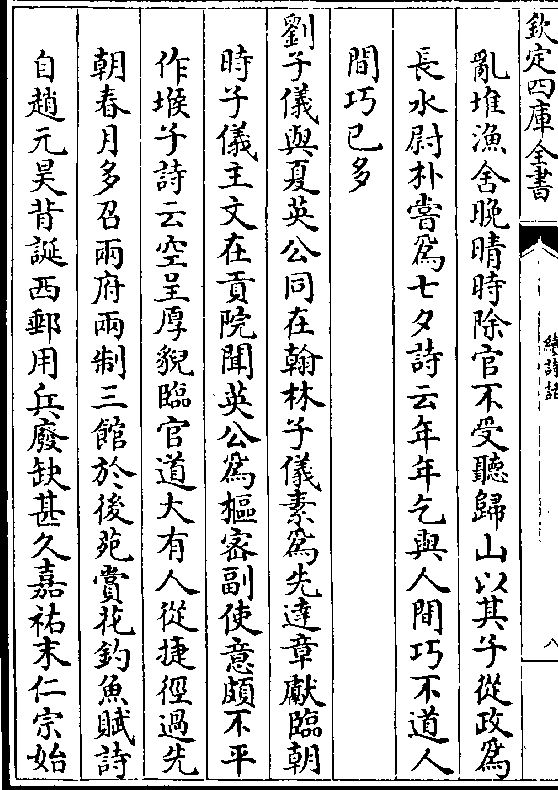 欽定四庫全書
續詩話
八
亂堆漁舍晚晴時除官不受聽歸山以其子從政為
長水尉朴嘗為七夕詩云年年乞與人間巧不道人
間巧已多
劉子儀與夏英公同在翰林子儀素為先達章獻臨朝
時子儀主文在貢院聞英公為樞密副使意頗不平
作堠子詩云空呈厚貌臨官道大有人從捷徑過先
朝春月多召兩府兩制三館於後苑賞花釣魚賦詩
自趙元昊背誕西鄙用兵廢缺甚久嘉祐末仁宗始